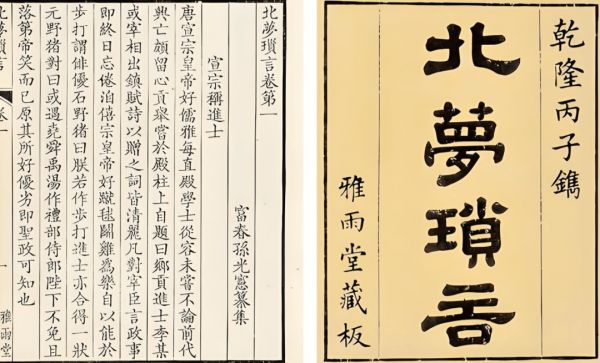 乾隆丙子鐫
北夢瑣言
雅雨堂藏板
北夢瑣言卷第一
富春孫光憲纂集
宣宗稱進士
唐宣宗皇帝好儒雅每直殿學士從容未嘗不論前代
興亡頗留心貢舉嘗於殿柱上自題曰鄉貢進士李某
或宰相出鎮賦詩以贈之詞皆清麗凡對宰臣言政事
即終日忘倦洎僖宗皇帝好蹴毬鬬雞爲樂自以能於
步打謂俳優石野猪曰朕若作步打進士亦合得一狀
元野猪對曰或遇堯舜禹湯作禮部侍郎陛下不免且
落第帝笑而已原其所好優劣即聖政可知也
北夢瑣言
卷一
一
雅雨堂